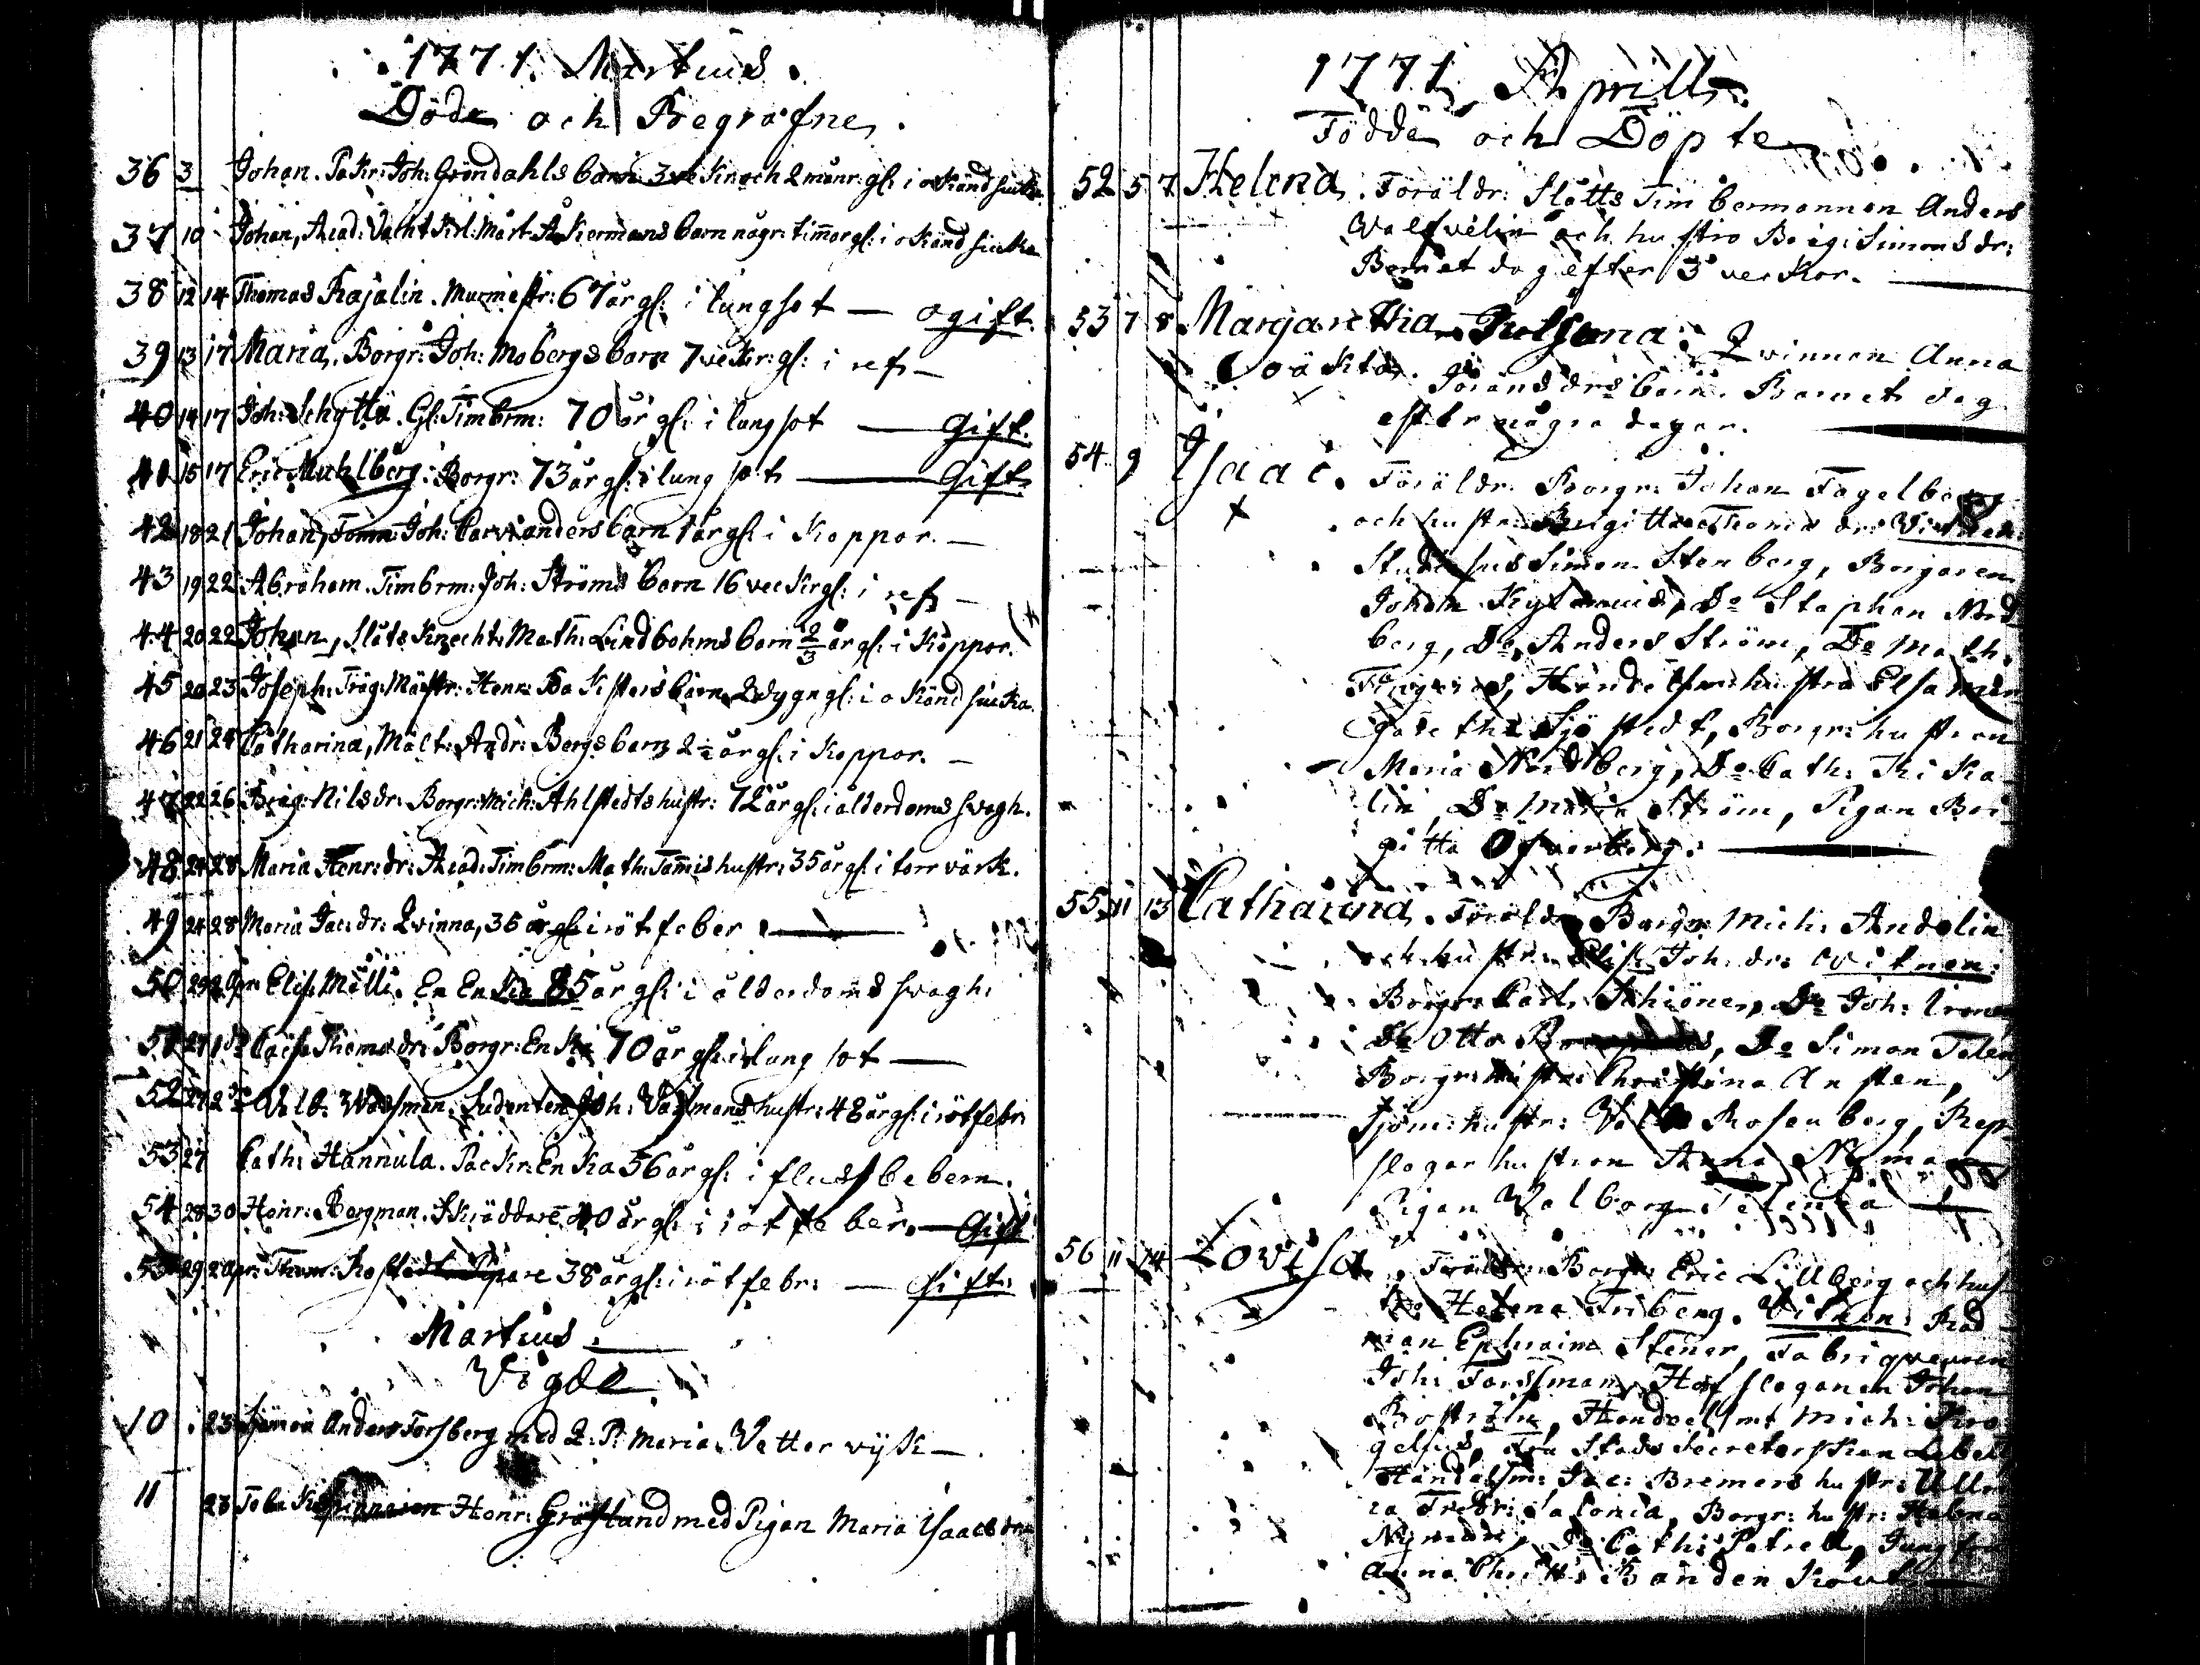 1771. Martius.
Döde och Begrafne.
36 3 Johan. Pakr: Joh: Gröndahls barn 3 vekr och 2 månr. gl: i okänd siuka.
37 10 Johan, Acad: Vacht Krl: Mårt Åkermans barn någr: timar gl: i okänd siuka
38 12 14 Thomas Kajalin. Murmestr: 67 år gl: i lungsot — ogift.
39 13 17 Maria, Borgr: Joh: Mobergs barn 7 vekr: gl: i refs —
40 14 17 Joh: Schytta. Gl: Timbrm: 70 år gl: i lungsot — Gift.
41 15 17 Eric Muhlberg: Borgr: 73 år gl: i lungsot — Gift.
42 18 21 Johan, Joh: barn 1 år gl: i Koppor. —
43 19 22 Abraham. Timbrm: Joh: Ströms barn 16 veckr gl: i refs —
44 20 22 Johan, Slåts Knecht: Math: Lindbohms barn 2/3 år gl: i Koppor.
45 20 23 Joseph: Träg: Mästr: Henr: barn 2 dygn gl: i okänd siuka.
46 21 24 Catharina, Mält: Andr: Bergs barn 2 1/2 år gl: i Koppor. —
47 22 26 Brig: Nilsdr: Borgr: Mich: Ahlstedts hustr: 72 år gl: i ålderdoms svagh.
48 24 28 Maria Henr: dr: Acad: Timbrm: Math: Tammis hustr: 35 år gl: i torrvärk.
49 24 28 Maria Jac: dr: Qvinna, 36 år gl: i rötfeber —
50 25 2 Apr: Elis: Mälli. En Enkia 85 år gl: i ålderdoms svagh:
51 27 1 do Caisa Thomædr: Borgr: Enkia 70 år gl: i lungsot —
52 27 2 do Valb: Wassman. Studenten Joh: Vassmans hustr: 48 år gl: i rötfebr:
53 27 Cath: Hannula. Packr: Enka 56 år gl: i flussbeberi.
54 28 30 Henr: Bergman. Skräddare 40 år gl: i rötfeber. — Gift
55 29 2 apr: Thom: 38 år gl: i rötfebr: — Gift:
Martius.
Vigde
10 23 Anders Forsberg med Q: P: Maria Vettervijk —
11 23 Henr: Gräslund med Pigan Maria Isaacs dr:
1771. Aprill.
Födde och Döpte
52 5 7 Helena. Föräldr: Slåtts Timbermannen Anders
Valfvelin och hustro Brig: Simonsdr:
Barnet dog efter 3 veckor. —
53 7 8 Margaretha Qvinnan Anna
Oäkta. Göransdrs barn. Barnet dog
efter några dagar. —
54 9 Isaac. Föräldr: Borgr: Johan Fagelberg
och hustr: Brigitta Thomædr: Vitnen:
Studiosus Simon Stenberg, Borgaren
Johan Do Staphan Nord-
berg, Do Anders Ström, Do Math:
Handelsm: hustro Elsa Mar-
garetha Sjöstedt, Borgr: hustron
Maria Nordberg, Do Cath: Kika-
lin, Do Maria Ström, Pigan Bri-
gitta Öfverberg. —
55 11 13 Catharina. Föräldr: Borgr: Mich: Andelin
och hustr: Elis: Joh: dr: Vitnen:
Borgr: Carl Schiöner, Do Joh:
Do Otto Do Simon Telen,
Borgr: hustr: Christina Ansten,
Sjöm: hustr: Valb: Rosenberg, Rep-
slagar hustron Anna Nyman
Pigan Walborg
56 11 14 Lovisa. Föräldr: Borgr: Eric Lillberg och hus-
tro Helena Friberg. Vitnen: Råd-
man Ephraim Stener, Fabriqveuren
Joh: Forssman, Hofslagaren Johan
Boström, Handelsm: Mich: Kro-
gelius, Fru Stads Secreterskan
Handelsm: Jac: Bremers hustr: Ulri-
ca Fredr: Salonia, Borgr: hustr: Helena
Nyman, Do Cath: Petrell, Jungfru
Anna